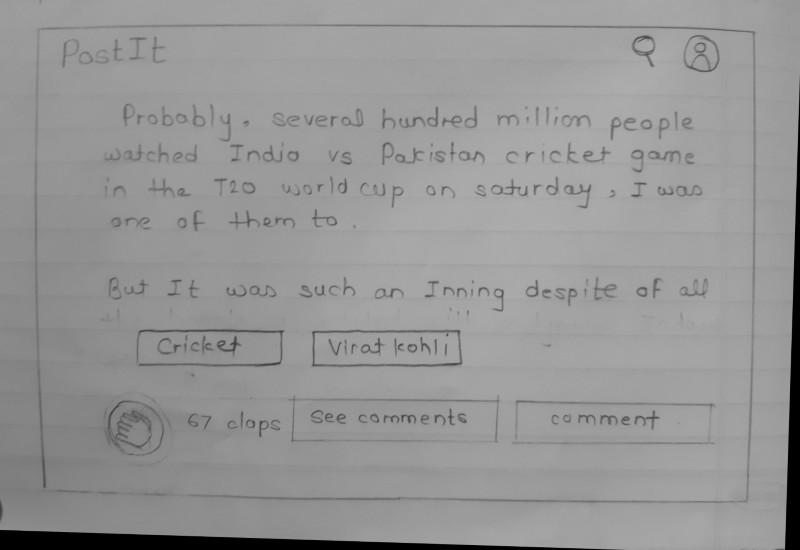 PostIt
Probably, several hundred million people
watched India vs Pakistan cricket game
in the T20 world cup on saturday, I was
one of them to.
But It was such an Inning despite of all
Cricket
Virat kohli
67 claps
see comments
comment